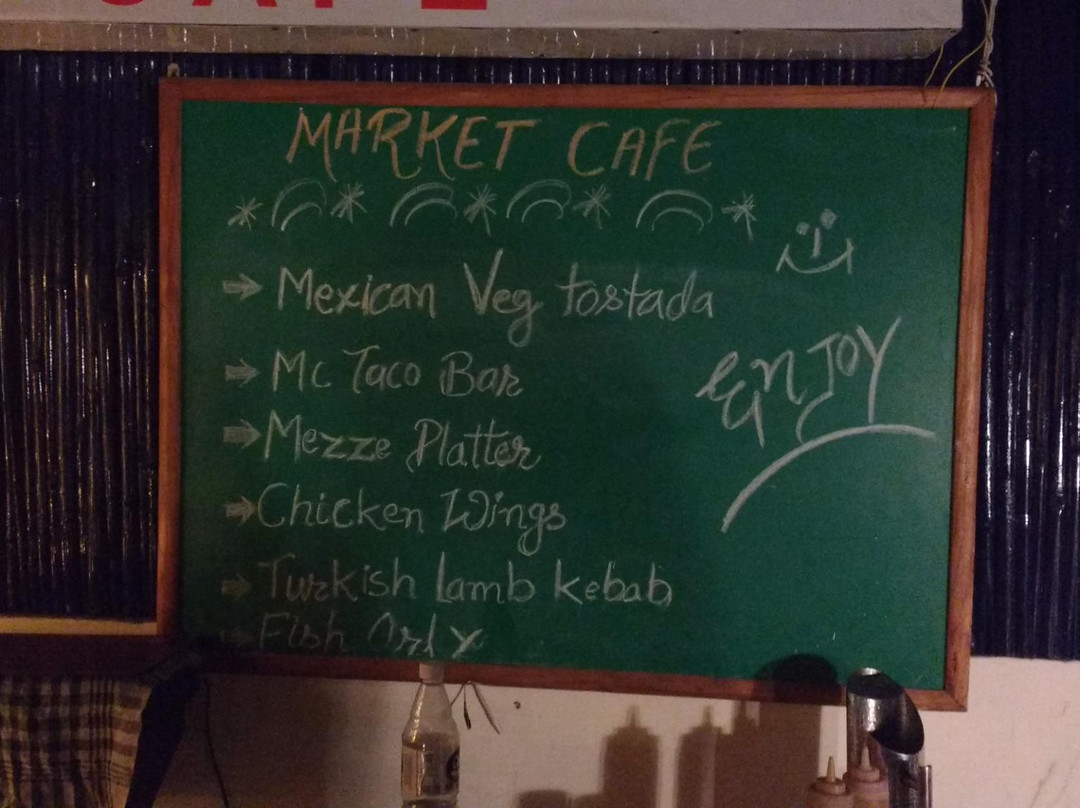 CAFE
MARKET CAFE
Mexican Veg tostada
Mc Taco Bar
ENJOY
Mezze Platter
Chicken Wings
Turkish Lamb Kebab
Fish